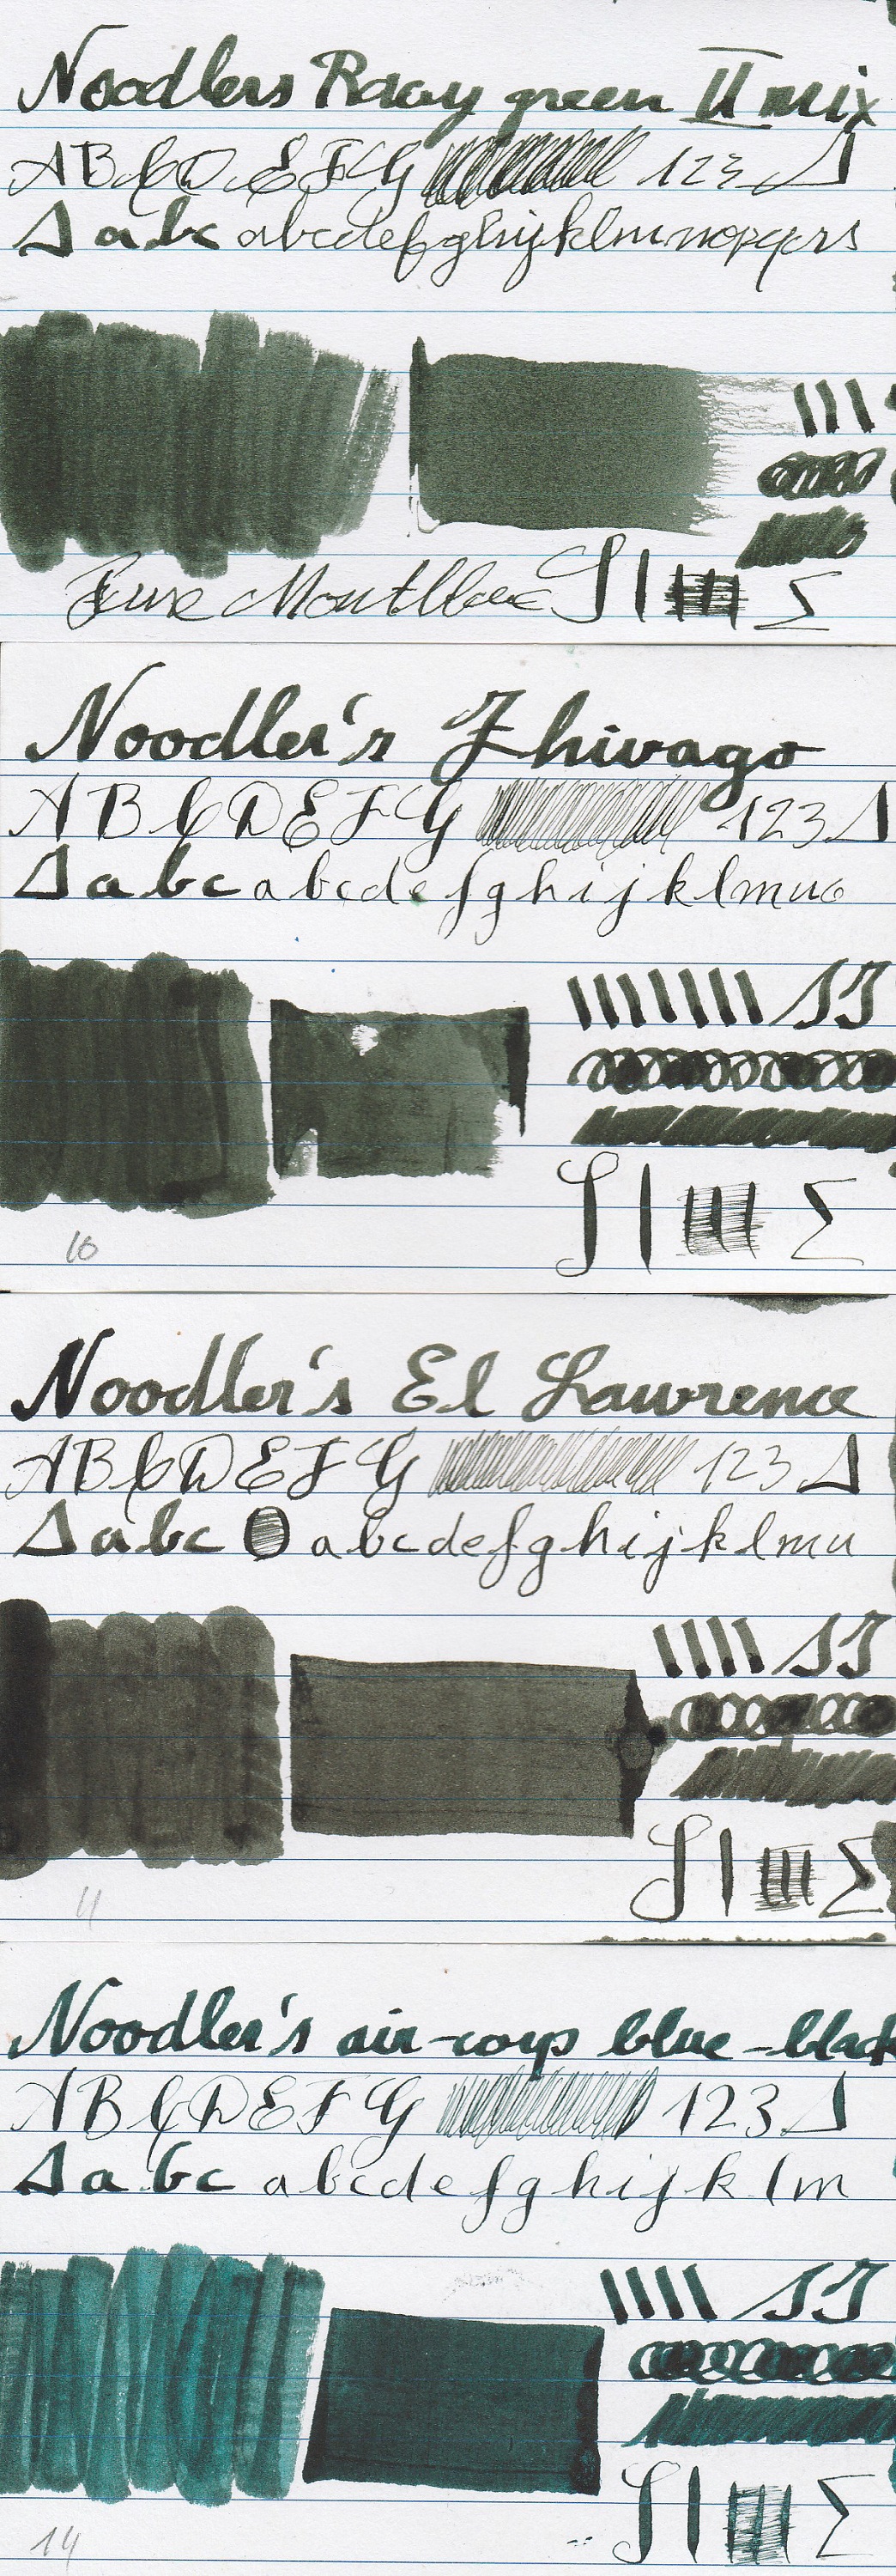 Noodlers Raay green II mix
A B C D E F G 123
a b c abcdefghijklmnopqrs
Noodler's Zhivago
A B C D E F G 123
a b c a b c d e f g h i j k l m n o
10
Noodler's El Lawrence
A B C D E F G 123
a b c a b c d e f g h i j k l m n
11
Noodler's air-corp blue-black
A B C D E F G 123
a b c a b c d e f g h i j k l m
14